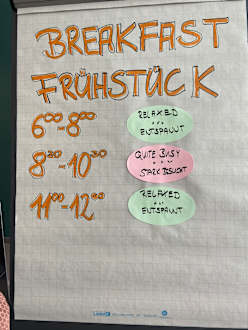 BREAKFAST
FRÜHSTÜCK
6⁰⁰ - 8⁰⁰
RELAXED
ENTSPANNT
8³⁰ - 10³⁰
QUITE BUSY
STARK BESUCHT
11⁰⁰ - 12
RELAXED
ENTSPANNT